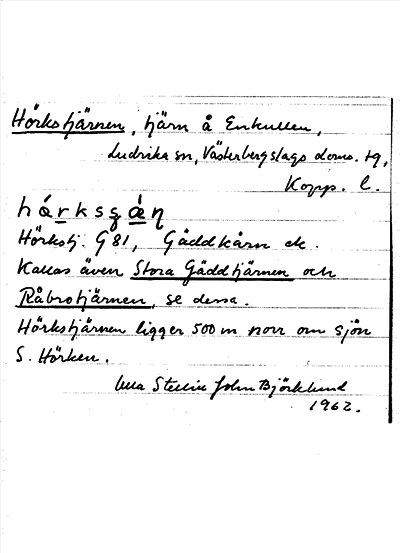 Hörkstjärnen, tjärn å Enkullen,
Ludvika sn, Västerbergslags doms. tg,
Kopp. l.
hárksgàn
Hörkstj. G 81, Gäddkärn ek.
Kallas även Stora Gäddtjärnen och
Råbrotjärnen, se dessa.
Hörkstjärnen ligger 500 m norr om sjön
S. Hörken.
Stellin John Björklund
1962.